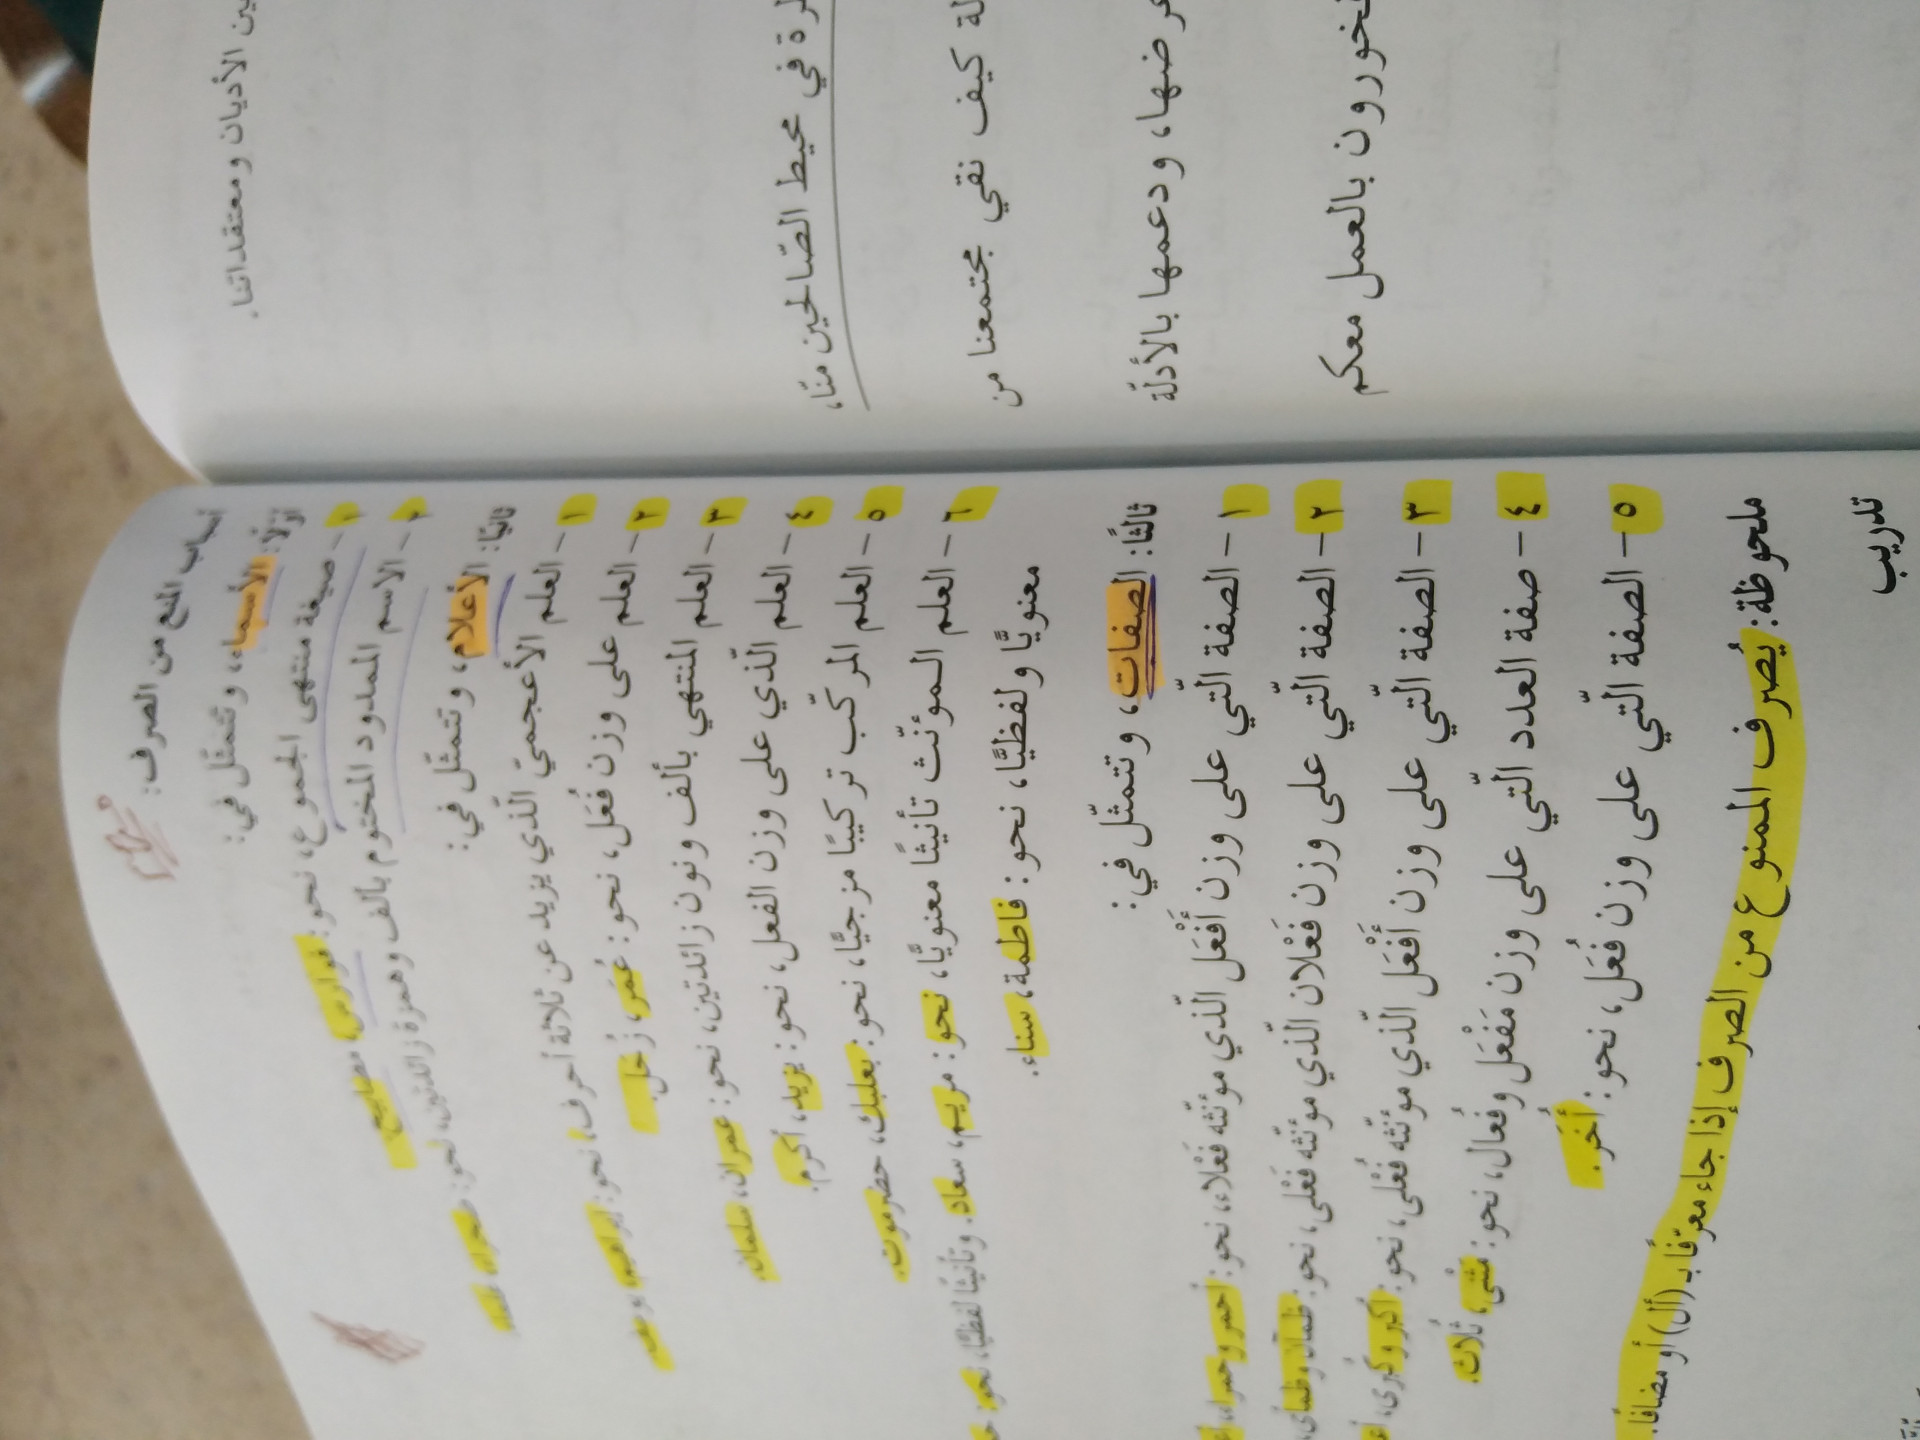 أسباب المنع من الصرف:
أوّلًا: الأسماء، وتتمثّل في:
١ - صيغة منتهى الجموع، نحو: مدارس، مصابيح.
٢ - الاسم الممدود المختوم بألف وهمزة زائدتين، نحو: صحراء
ثانيًا: الأعلام، وتتمثّل في:
١ - العلم الأعجميّ الّذي يزيد عن ثلاثة أحرف، نحو: إبراهيم،
٢ - العلم على وزن فُعَل، نحو: عُمَر، زُحَل.
٣ - العلم المنتهي بألف ونون زائدتين، نحو: عمران، سلمان.
٤ - العلم الّذي على وزن الفعل، نحو: يزيد، أكرم.
٥ - العلم المركّب تركيبًا مزجيًّا، نحو: بعلبك، حضرموت.
٦ - العلم المؤنّث تأنيثًا معنويًّا، نحو: مريم، سعاد. وتأنيثًا لفظيًّا، نحو:
معنويًّا ولفظيًّا، نحو: فاطمة، سناء.
ثالثًا: الصفات، وتتمثّل في:
١ - الصفة الّتي على وزن أَفْعَل الّذي مؤنّثه فَعْلاء، نحو: أحمر وحمراء،
٢ - الصفة الّتي على وزن فَعْلان الّذي مؤنّثه فَعْلى، نحو: ظمآن وظمأى،
٣ - الصفة الّتي على وزن أَفْعَل الّذي مؤنّثه فُعْلى، نحو: أكبر وكُبرى،
٤ - صفة العدد الّتي على وزن مَفْعَل وفُعال، نحو: مَثْنى، ثُلاث.
٥ - الصفة الّتي على وزن فُعَل، نحو: أُخَر.
ملحوظة: يُصرف الممنوع من الصرف إذا جاء معرّفًا بـ (أل) أو مضافًا.
تدريب
ين الأديان ومعتقداتنا.
رة في محيط الصّالحين منّا،
لة كيف نقي مجتمعنا من
عرضها، ودعمها بالأدلّة
خورون بالعمل معكم